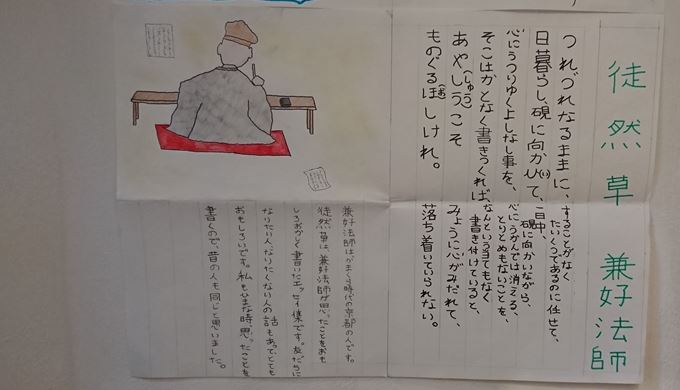 徒然草　兼好法師
つれづれなるままに、
日暮らし、硯に向かひ(い)て、
心にうつりゆくよしなし事を、
そこはかとなく書きつくれば、
あやしう(しゅう)こそ
ものぐるほ(お)しけれ。
することがなく
たいくつであるのに任せて、
一日中、
硯に向かいながら、
心にうかんでは消える、
とりとめもないことを、
なんという当てもなく
書き付けていると、
みょうに心がみだれて、
落ち着いていられない。
兼好法師はかまくら時代の京都の人です。
徒然草は、兼好法師が思ったことをおも
しろおかしく書いたエッセイ集です。友だちに
なりたい人、なりたくない人の話もあってとても
おもしろいです。私もひまな時思ったことを
書くので、昔の人も同じと思いました。